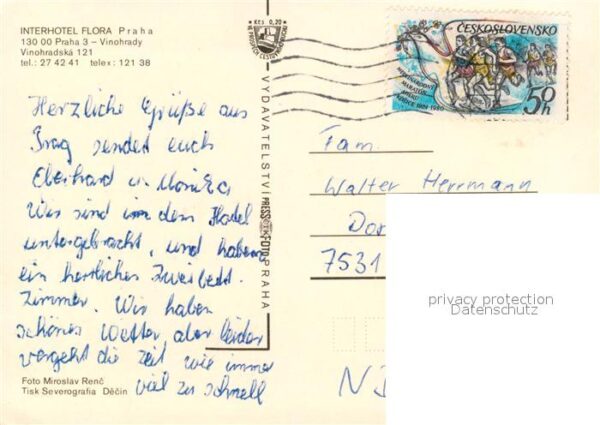 INTERHOTEL FLORA Praha
130 00 Praha 3 – Vinohrady
Vinohradská 121
tel.: 27 42 41 telex: 121 38
Kčs 0,20
ČESKOSLOVENSKO
MEZINÁRODNÍ
MARATÓN
MÍRU
KOŠICE 1924-1980
50h
VYDAVATELSTVÍ PRESSFOTO PRAHA
Herzliche Grüße aus
Prag sendet euch
Eberhard u. Monika
Wir sind in dem Hotel
untergebracht, und haben
ein herrliches Zweibett-
Zimmer. Wir haben
schönes Wetter, aber leider
vergeht die Zeit wie immer
viel zu schnell
Fam.
Walter Herrmann
Dor
7531
N
privacy protection
Datenschutz
Foto Miroslav Renč
Tisk Severografia Děčín